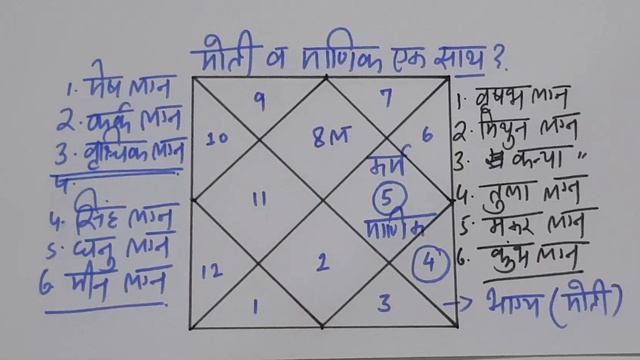 मोती व माणिक एक साथ?
1. मेष लग्न
2. कर्क लग्न
3. वृश्चिक लग्न
4. सिंह लग्न
5. धनु लग्न
6 मीन लग्न
9
7
10
8 ल
6
कर्म
11
5
माणिक
12
2
4
1
3
1. वृषभ लग्न
2. मिथुन लग्न
3. कन्या "
4. तुला लग्न
5. मकर लग्न
6. कुंभ लग्न
→ भाग्य (मोती)